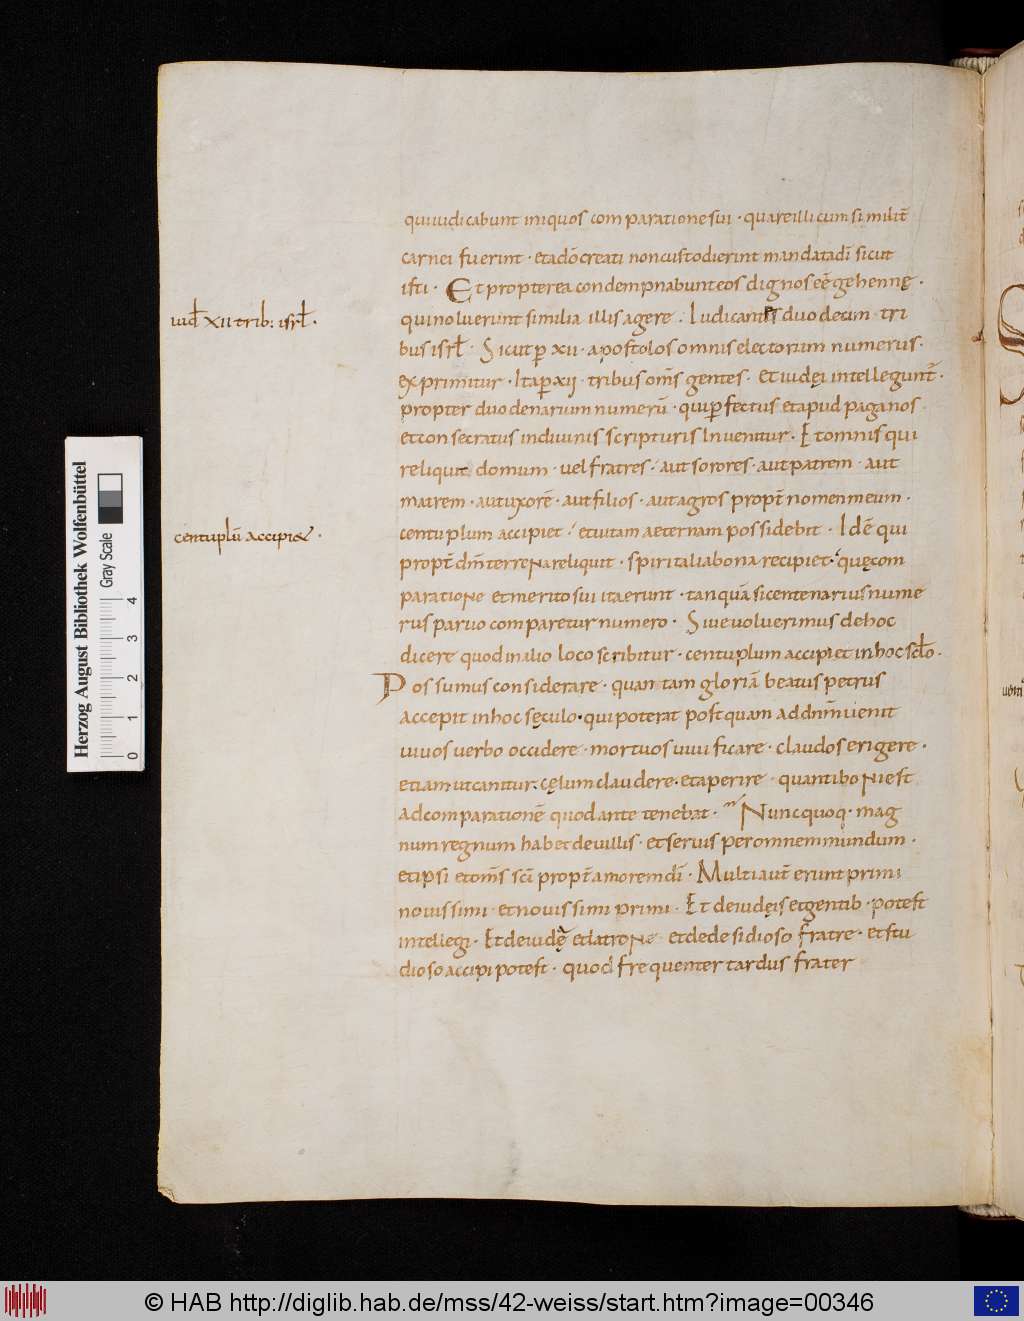 qui iudicabunt iniquos comparatione sui · quare illi cum similit̄
carnei fuerint · et a dō creati non custodierint mandata dī sicut
isti · Et propterea condempnabunt eos dignos eē gehennę ·
qui noluerunt similia illis agere . Iudicantes duodecim · tri
bus isrł · Sicut ꝑ xii · apostolos omnis electorum numerus ·
exprimitur · Ita ꝑ xii · tribus om̄s gentes · et iudęi intellegunt̄ ·
propter duodenarium numerū · qui ꝑfectus et apud paganos ·
et consecratus in diuinis scripturis Inuenitur · Et omnis qui
reliquit domum · uel fratres · aut sorores · aut patrem · aut
matrem · aut uxorē · aut filios · aut agros propt̄ nomen meum ·
centuplum accipiet · et uitam aeternam possidebit · Idē qui
propt̄ dm̄ terrena reliquit · spiritalia bona recipiet · quę com
paratione et merito sui ita erunt · tanquā si centenarius nume
rus paruo comparetur numero · Siue uoluerimus de hoc
dicere quod in alio loco scribitur · centuplum accipiet in hoc scło ·
Possumus considerare · quantam gloriā beatus petrus
accepit in hoc sęculo · qui poterat postquam ad dnm̄ uenit
uiuos uerbo occidere · mortuos uiuificare · claudos erigere ·
etiam ut canitur . cęlum claudere · et aperire · quanti boni est
ad comparationē quod ante tenebat · Nunc quoq · mag
num regnum habet de uillis · et seruis per omnem mundum ·
et ipsi et om̄s sc̄i propt̄ amorem dī · Multi aut̄ erunt primi
nouissimi · et nouissimi primi · Et de iudęis et gentib · potest
intellegi · Et de iudę et latrone · et de desidioso fratre · et stu
dioso accipi potest · quod frequenter tardus frater
iud̄ xii trib: isrł ·
centuplū accipi&ꝫ ·
Herzog August Bibliothek Wolfenbüttel
Gray Scale
0 1 2 3 4
© HAB http://diglib.hab.de/mss/42-weiss/start.htm?image=00346